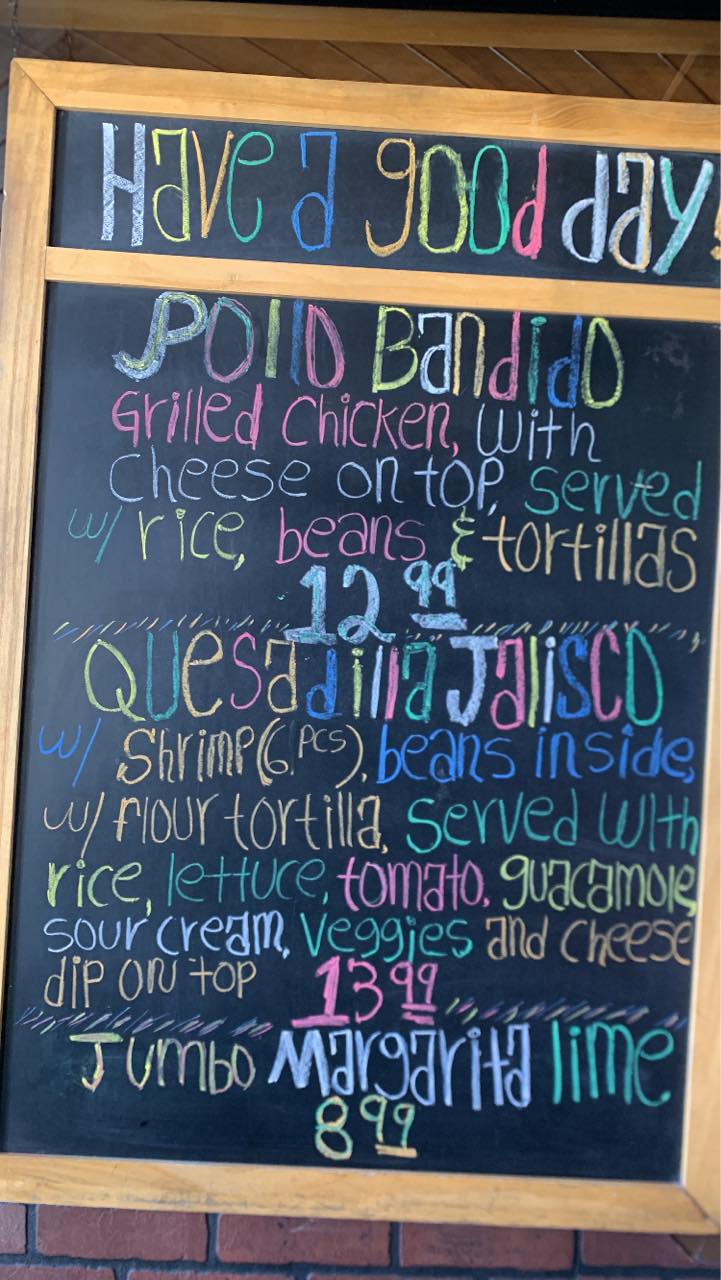 Have a good day!
Pollo Bandido
Grilled Chicken, with
cheese on top, served
w/ rice, beans & tortillas
12 99
Quesadilla Jalisco
w/ Shrimp (6 pcs), beans inside,
w/ flour tortilla, served with
rice, lettuce, tomato, guacamole,
sour cream, veggies and cheese
dip on top 13 99
Jumbo Margarita lime
8 99